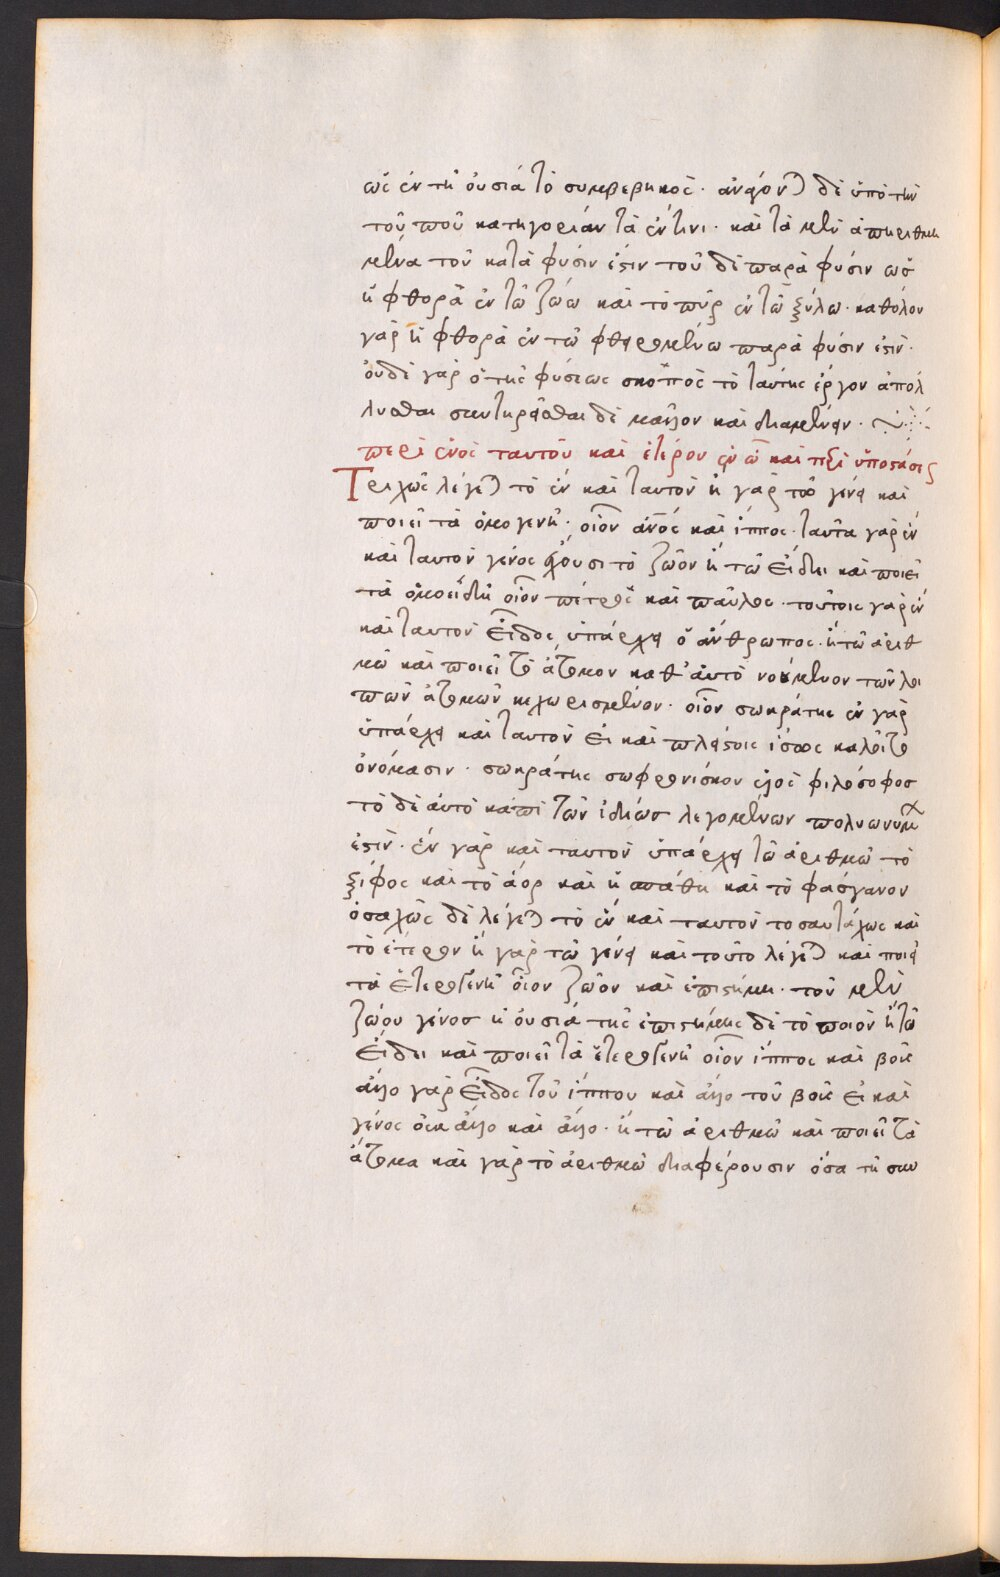 ὡς ἐν τῆ οὐσία τὸ συμβεβηκός· ἀνάγον) δὲ ὑπὸ τὴν
τοῦ ποῦ κατηγορίαν τὰ ἔν τινι· καὶ τὰ μὲν ἀπηριθμη
μένα τοῦ κατὰ φύσιν ἐστιν τοῦ δὲ παρὰ φύσιν ὡς
ἡ φθορὰ ἐν τῶ ζώω καὶ τὸ πῦρ ἐν τῶ ξύλω· καθόλου
γὰρ ἡ φθορὰ ἐν τῶ φθειρομένω παρὰ φύσιν ἐστιν·
οὐδὲ γὰρ ὁ τῆς φύσεως σκοπὸς τὸ ταύτης ἔργον ἀπόλ
λυσθαι συντηρεῖσθαι δὲ μᾶλλον καὶ διαμένειν·
περὶ ἑνὸς ταυτοῦ καὶ ἑτέρου ἐν ὧ καὶ περὶ ὑποστάσεις
Τριχῶς λέγε) τὸ ἓν καὶ ταυτὸν ἢ γὰρ τῶ γένει καὶ
ποιεῖ τὰ ὁμογενῆ· οἷον ἄνος καὶ ἵππος· ταῦτα γὰρ ἓν
καὶ ταυτὸν γένος ἔχουσι τὸ ζῶον ἢ τῶ εἴδει καὶ ποιεῖ
τὰ ὁμοειδῆ οἷον πέτρος καὶ παῦλος· τούτοις γὰρ ἓν
καὶ ταυτὸν εἶδος ὑπάρχει ὁ ἄνθρωπος· ἢ τῶ ἀριθ
μῶ καὶ ποιεῖ τὸ ἄτομον καθ' αὑτὸ νοούμενον τῶν λοι
πῶν ἀτόμων κεχωρισμένον· οἷον σωκράτης ἓν γὰρ
ὑπάρχει καὶ ταυτὸν εἰ καὶ πλείστοις ἴσως καλοῖτο
ὀνόμασιν· σωκράτης σωφρονίσκου υἱὸς φιλόσοφος
τὸ δὲ αὐτὸ κἀπὶ τῶν ἰδίως λεγομένων πολυωνύμων
ἐστιν· ἓν γὰρ καὶ ταυτὸν ὑπάρχει τῶ ἀριθμῶ τὸ
ξίφος καὶ τὸ ἄορ καὶ ἡ σπάθη καὶ τὸ φάσγανον
ὁσαχῶς δὲ λέγε) τὸ ἓν καὶ ταυτὸν τοσαυτάχως καὶ
τὸ ἕτερον ἢ γὰρ τῶ γένει καὶ τοῦτο λέγε) καὶ ποιεῖ
τὰ ἑτερογενῆ οἷον ζῶον καὶ ἐπιστήμη· τοῦ μὲν
ζώου γένος ἡ οὐσία τῆς ἐπιστήμης δὲ τὸ ποιὸν ἢ τῶ
εἴδει καὶ ποιεῖ τὰ ἑτερογενῆ οἷον ἵππος καὶ βοῦς
ἄλλο γὰρ εἶδος τοῦ ἵππου καὶ ἄλλο τοῦ βοὸς εἰ καὶ
γένος οὐκ ἄλλο καὶ ἄλλο· ἢ τῶ ἀριθμῶ καὶ ποιεῖ τὰ
ἄτομα καὶ γὰρ τὸ ἀριθμῶ διαφέρουσιν ὅσα τῆ συν